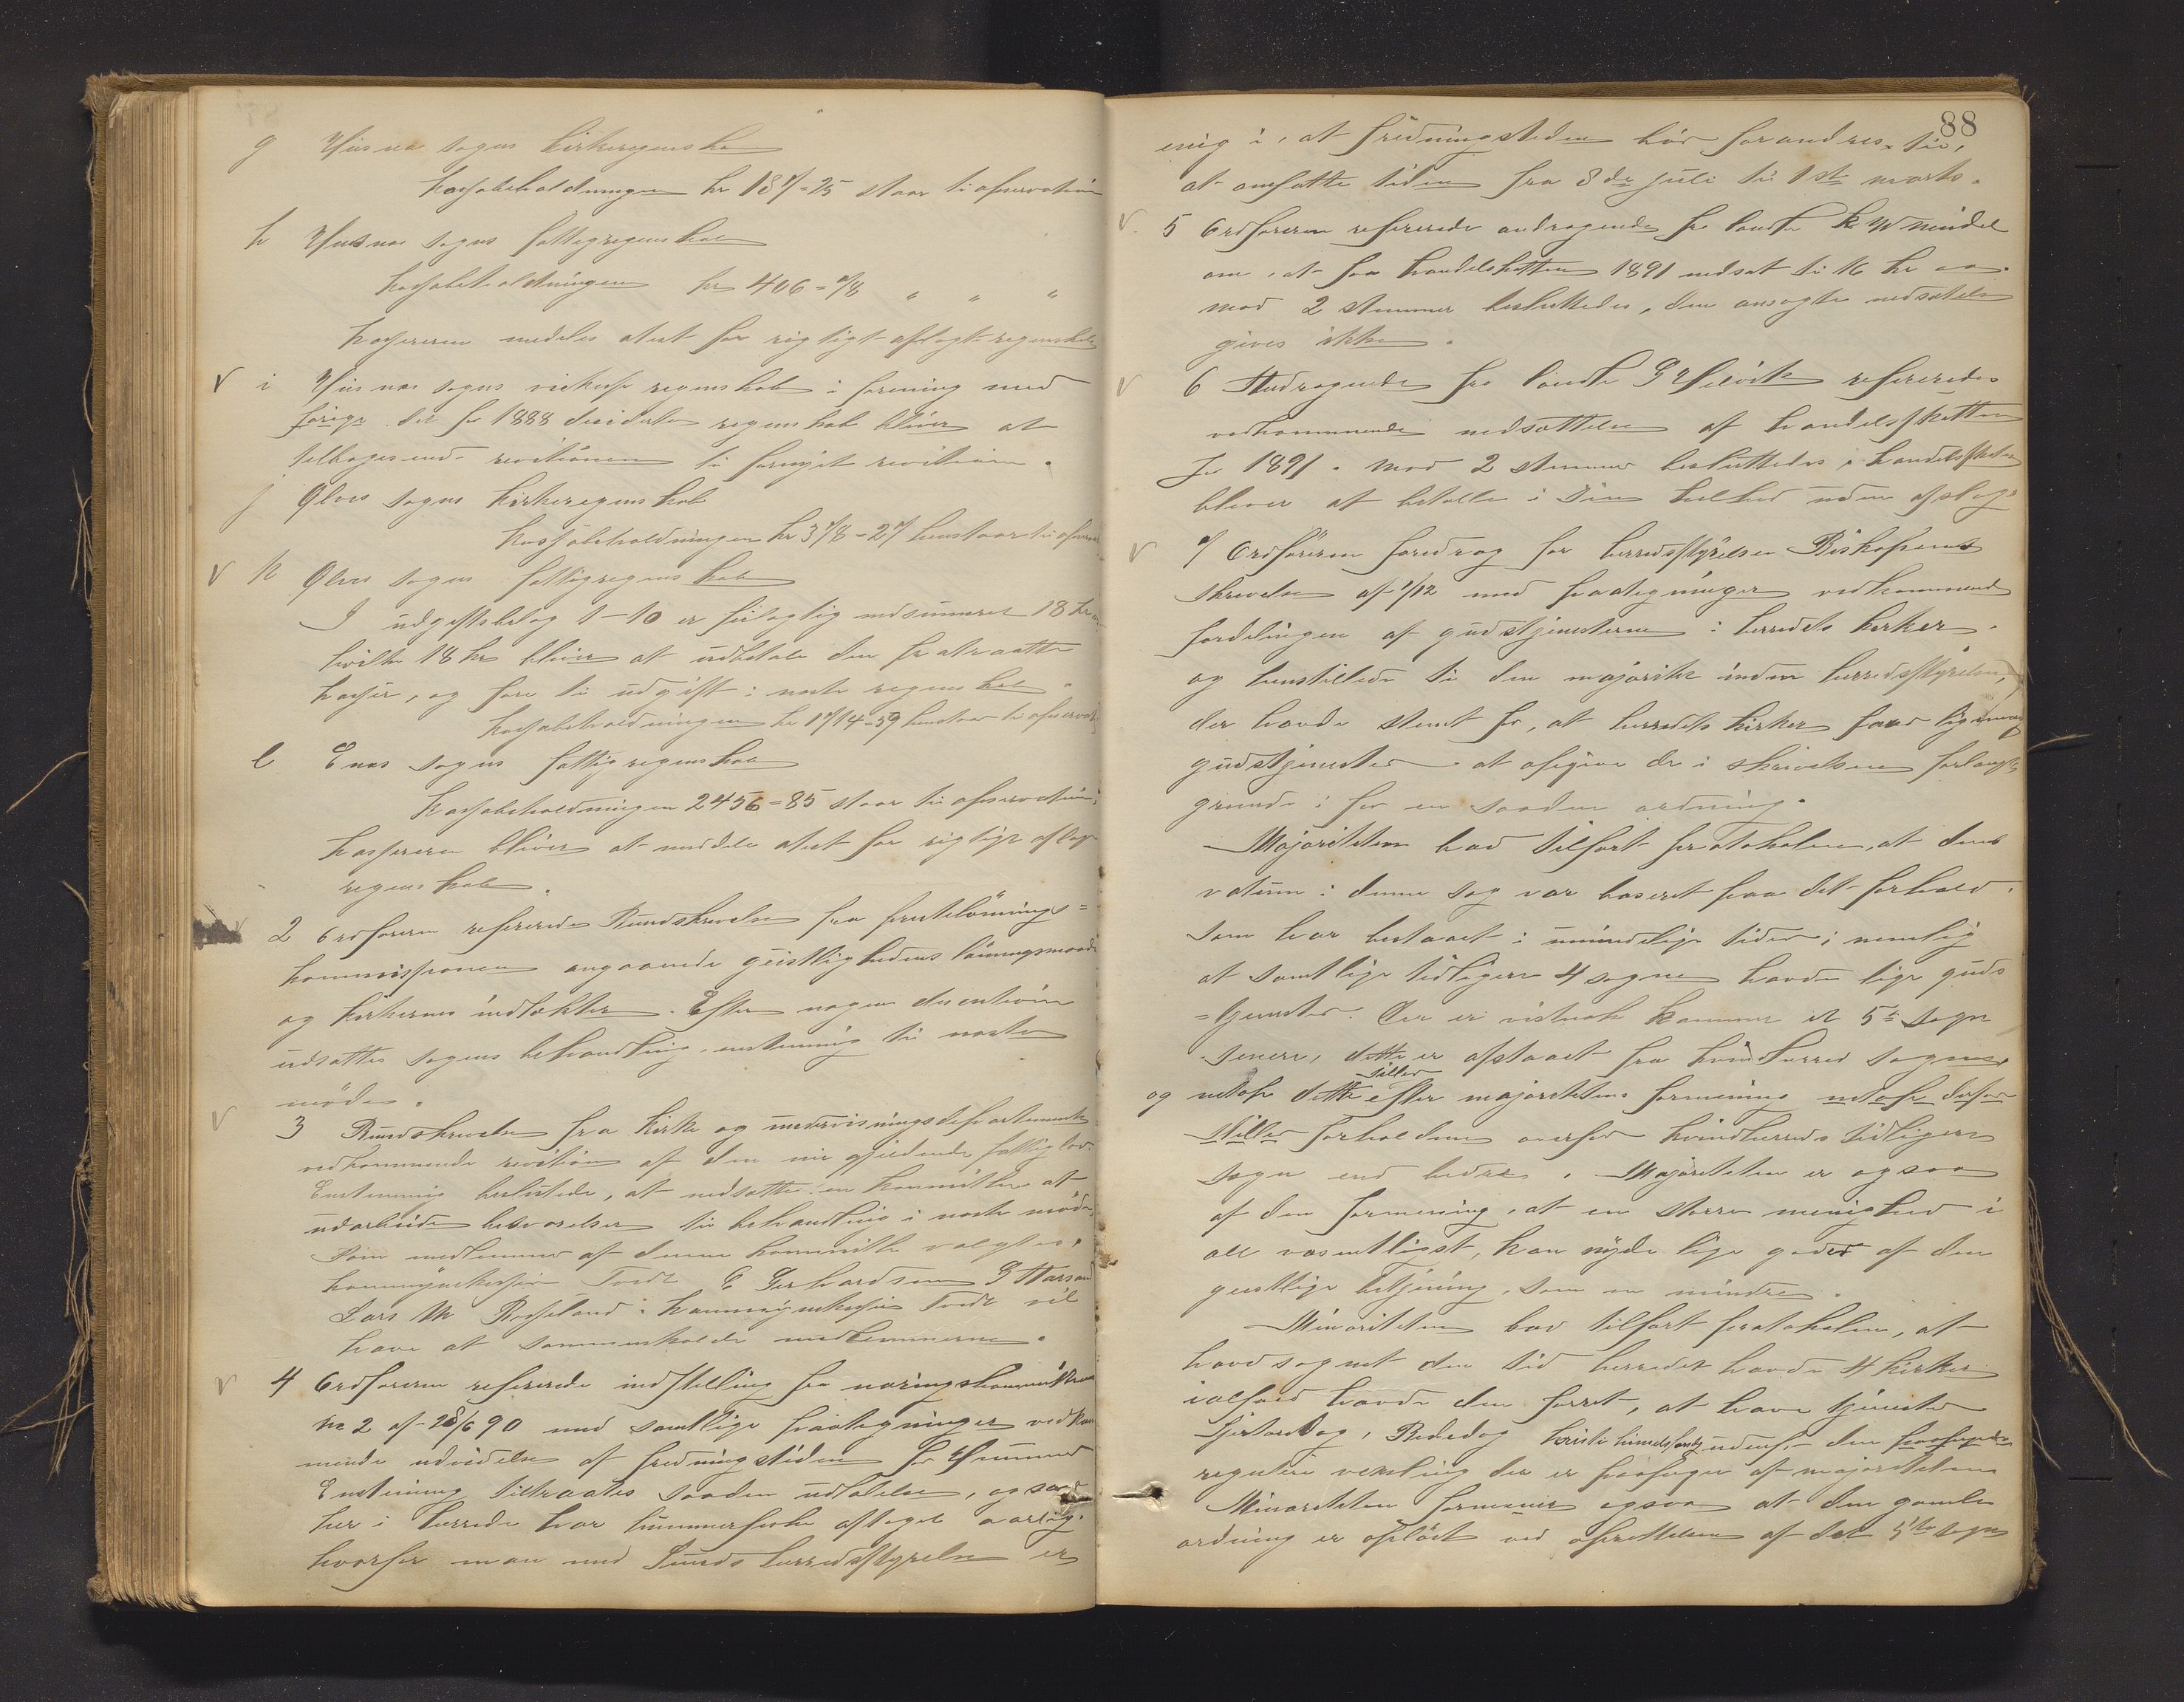 g Husnes sogns kirkeregnskab
Kassabeholdningen kr 187=25 staar til observation
h Husnes sogns fattigregnskab
Kassabeholdningen kr 406=78 " " "
Kassereren meddeles atest for rigtigt aflagte regnskab
V i Husnes sogns regnskab i forening med
forige det for 1888 desiderte regnskab bliver at
tilbagesende revitionen til fornyet revition.
j Ølves sogns Kirkeregnskab
Kassabeholdningen kr 378=27 henstaar til observ
V k Ølves sogns fattigregnskab
I udgiftsbelag 1-10 er feilagtig nedsumeret 18 kr
hvilke 18 kr bliver at udbetale den fratraatte
kasser, og fore til udgift i neste regnskab.
Kassabeholdningen kr 1714=59 henstaar til observat
l Enes sogns fattigregnskab
Kassabeholdningen 2456=85 staar til observation;
kassereren bliver at meddele atest for rigtige aflagt
regnskab.
V 2 Ordføreren refererede Rundskrivelse fra prestelønnings=
kommissionen angaaende geistlighedens lønningsmaade
og kirkernes indtekter. Efter nogen discution
udsattes sagens behandling enstemig til neste
møde.
V 3 Rundskrivelse fra Kirke og undervisningsdepartementet
vedkommende revition af den nu gjeldende fattiglov.
Enstemmig beslutede, at nedsatte en kommitte at
udarbeide besvarelser til behandling i neste møde,
Som medlemmer af denne kommitte valgtes.
kommunekasser Tvedt E Gerhardsen G Aarsand
Lars M Rosseland. kommunekasser Tvedt vil
have at sammenkalde medlemmerne.
V 4 Ordføreren refererede indstilling fra næringskommitteen
No 2 af 28/6 90 med samtlige paategninger vedkom
mende udvidelse af fredningstiden for Hummer
Enstemmig tiltraates saadan udtalelse, og
her i herredet har hummerfisket aftaget aarlig.
hvorfor man med Sunds herredsstyrelse er
88
enig i, at fredningstiden bør forandres til,
at omfatte tiden fra 8de juli til 1ste marts.
V 5 Ordføreren refererede andragende fra landh. K W Meidel
om, at faa handelskatten 1891 nedsat til 16 kr
mod 2 stemmer besluttedes, den ansøgte nedsættelse
gives ikke.
V 6 Andragende fra landh G refereredes
vedkommende nedsættelse af handelsskatten
for 1891. mod 2 stemmer besluttedes, handelsskatten
bliver at betale i Sin helhed uden afslag
V 7 Ordføreren foredrog for herredsstyrelsen Biskopens
Skrivelse af 1/12 med paategninger vedkommende
fordelingen af gudstjenesterne i herredets kirker.
og henstillede til den majoritet inden herredsstyrelsen,
der havde stemt for, at herredets kirker faar lige mange
gudstjenester at afgive de i skrivelsen forlangte
grunde i for en saadan ordning.
Majoriteten bad tilført protokolen, at dens
votum i denne sag var baseret paa det forhold.
Som har bestaaet i umindelige tider; nemlig
at samtlige tidligere 4 sogne havde lige guds
=tjenester. Der er vistnok kommen et 5te Sogn
senere, dette er afstaaet fra kvindherred Sogn
stiller
og netop dette efter majoritetens formening netop derfor
stiller forholdene overfor kvindherreds tidligere
sogn end bedre. Majoriteten er ogsaa
af den formening, at en større menighed i
alt væsentligst, kan nyde lige goder af den
geistlige betjening, som en mindre.
Minoriteten bad tilført protokolen, at
hovedsognet den tid herredet havde 4 kirker
ialfald havde den forret, at have tjeneste
, Bededag kristi himelfartsdag udenfor den
regulere veksling der er paapeget af majoriteten
Minoriteten formener ogsaa at den gamle
ordning er opløst ved oprettelsen af det 5te sogn